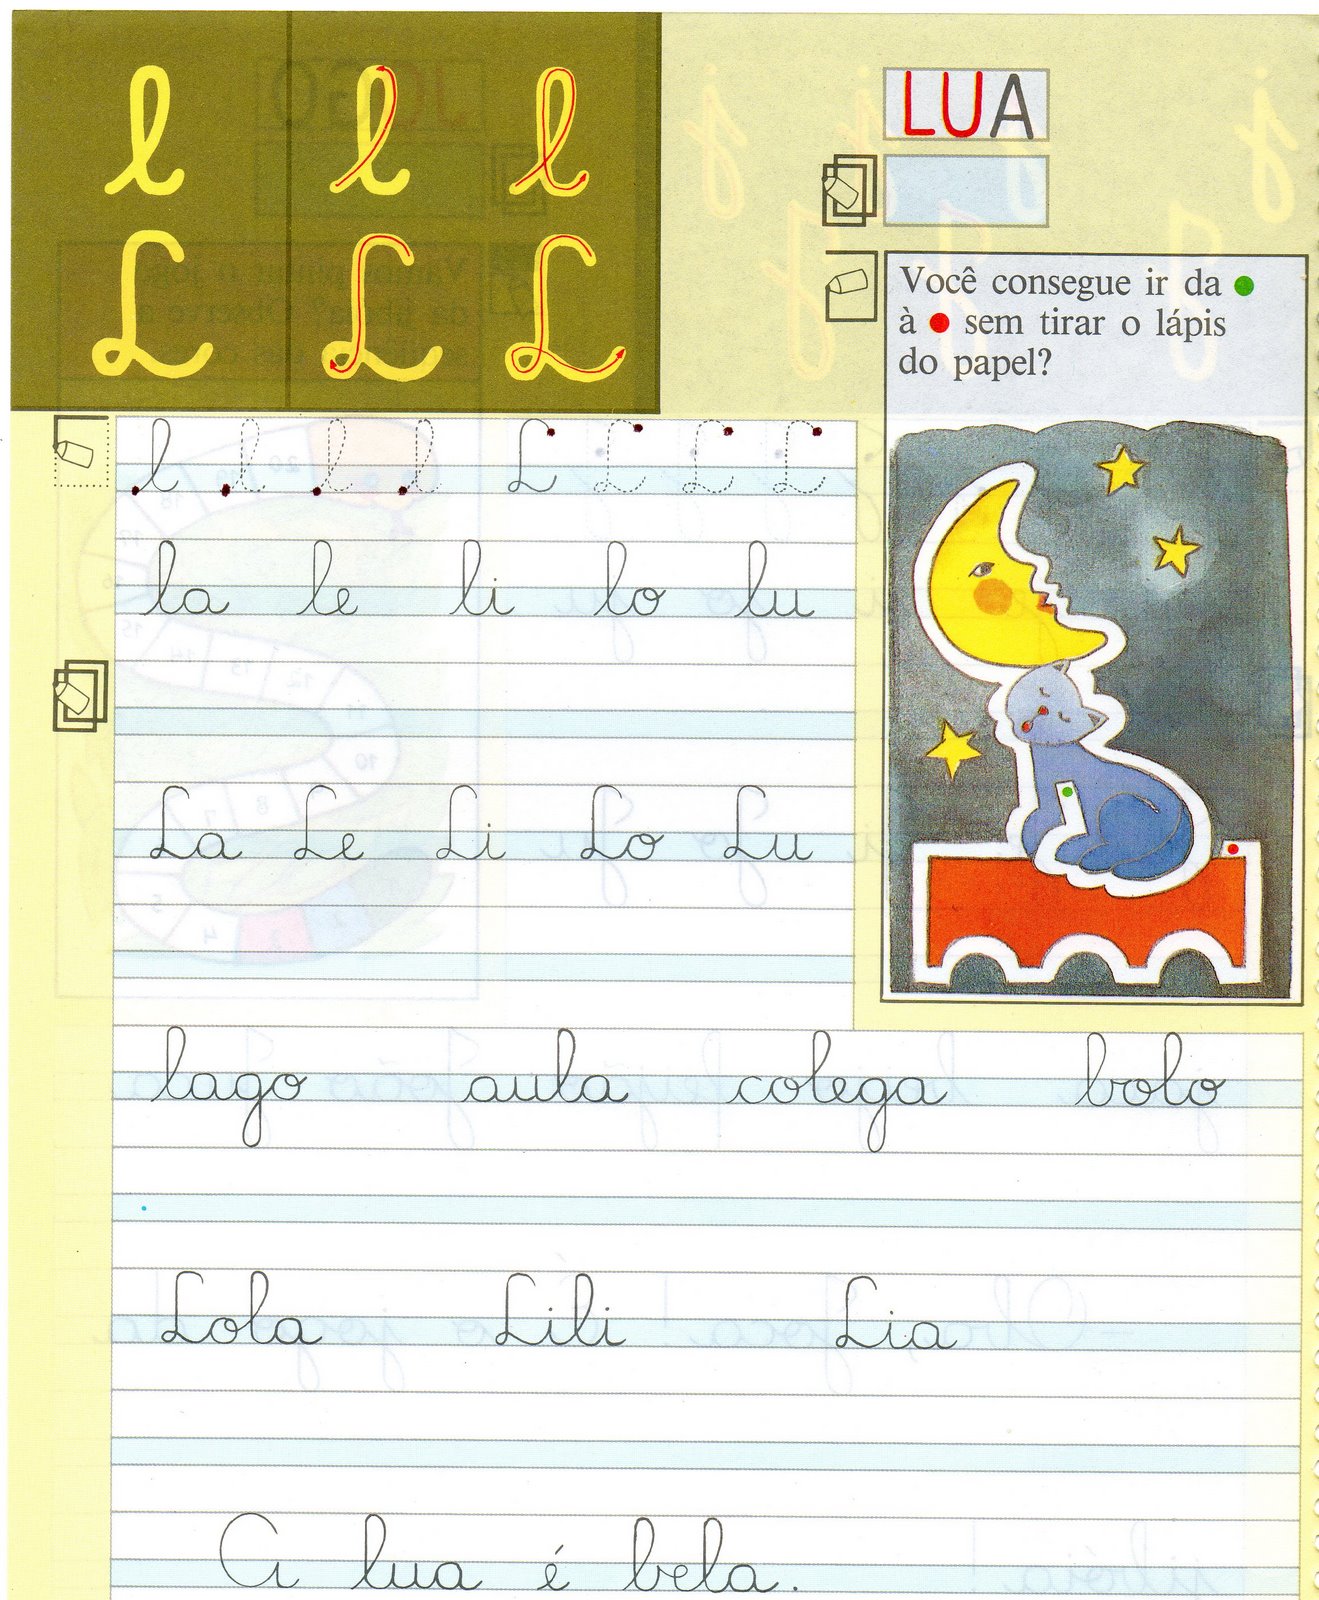 l l l
L L L
LUA
Você consegue ir da
à sem tirar o lápis
do papel?
l l l l L L L L
la le li lo lu
La Le Li Lo Lu
lago aula colega bolo
Lola Lili Lia
A lua é bela.